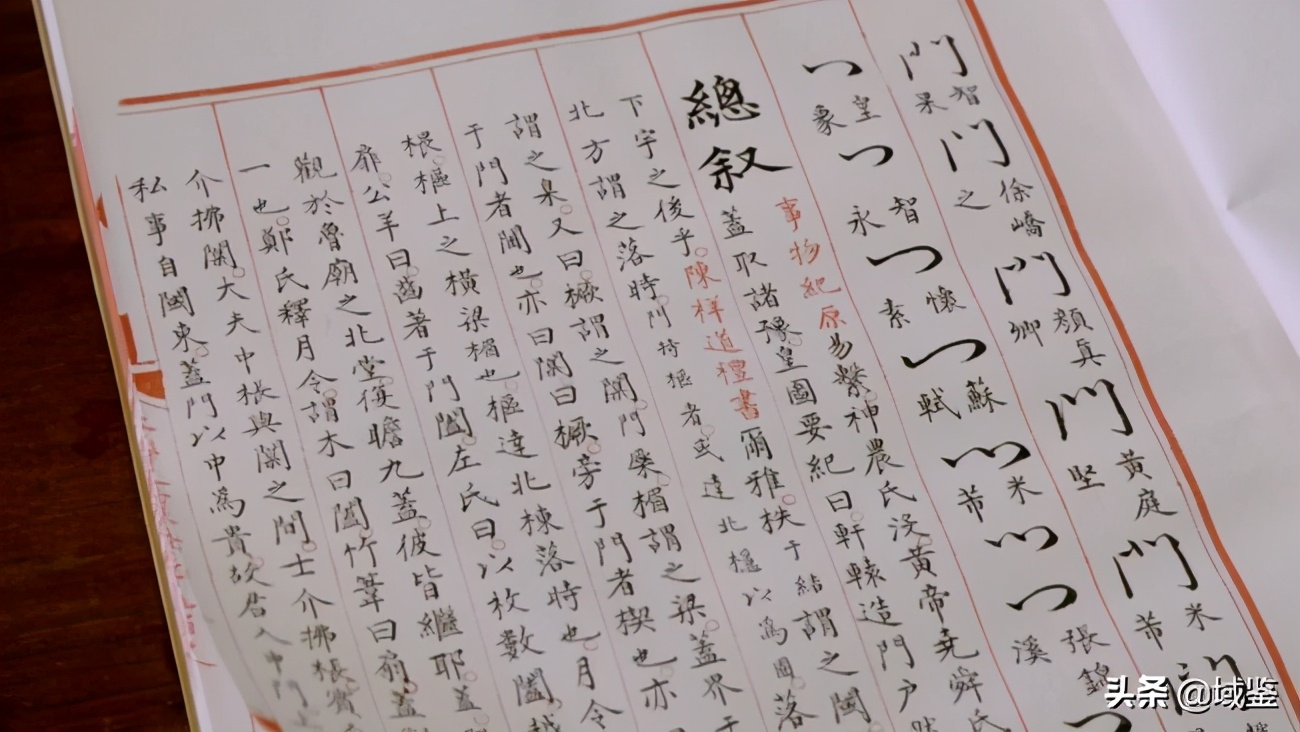 門智杲門徐嶠之門顏真卿門黃庭堅門米芾門
皇象智永懷素蘇軾米芾張錦溪
總叙
事物紀原易繫神農氏没黃帝堯舜氏
蓋取諸豫皇圖要紀曰軒轅造門户然
下宇之後乎陳祥道禮書爾雅柣于結謂之閾
北方謂之落時門持樞者或達北檼以爲固落
謂之臬又曰橛謂之闑門梁楣謂之梁蓋界于
于門者闑也亦曰闑曰橛旁于門者楔也亦
棖樞上之橫梁楣也樞達北棟落時也月令
扉公羊曰齒著于門闔左氏曰以枚數闔越
觀於魯廟之北堂復瞻九蓋彼皆繼耶蓋
一也鄭氏釋月令謂木曰闔竹葦曰扇蓋
介拂闑大夫中棖與闑之間士介拂棖賓
私事自闑東蓋門以中爲貴故君入中門上
头条 @域鉴